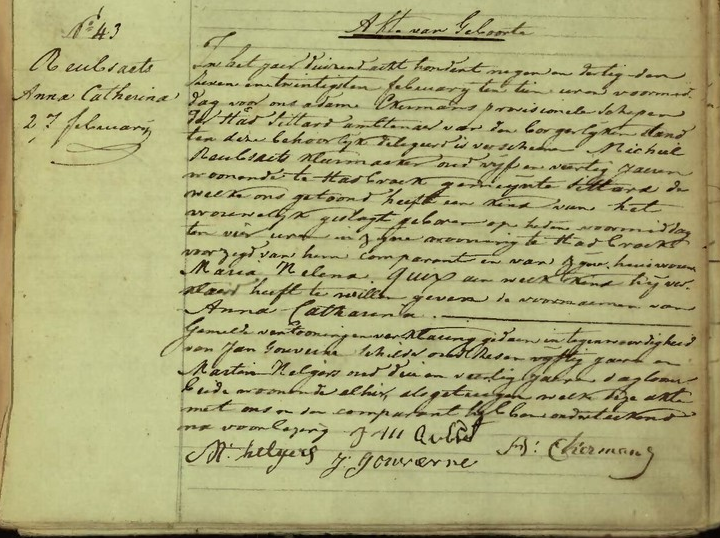 N° 43
Reubsaets
Anna Catherina
27 februarij
Akte van Geboorte
In het jaer duizend acht hondert negen en dertig den
seven en twintigsten februarij ten tien uren voormid
dag voor ons adam Ekermans provisionele schepen
der stad Sittard ambtenaer van den borgerlyken stand
ten deze behoorlyk delegeerd is verschenen Michiel
Reubsaets kleermaeker oud vyf en veertig jaeren
woonende te Stadbroek gemeynte Sittard de
welke ons getoond heeft een kind van het
vrouwelyk geslagt geboren op heden voormiddag
ten vier uren in zyne wooning te Stadbroek
voorzegd van hem comparant en van zyne huisvrouw
Maria Helena Quix aen welk kind hy ver
klaard heeft te willen geven de voornaemen van
Anna Catharina.
Gemelde vertooning en verklaring gedaen in tegenwoordigheid
van Jan Gouverne schilder oud sesen vyftig jaeren en
Marten Helgers oud drie en veertig jaeren dagloner
beide woonende alhier, als getuigen welk deze akte
met ons en den comparant hebben onderteekend
na voorlezing
M. helgers J. gouverne A: Ekermans